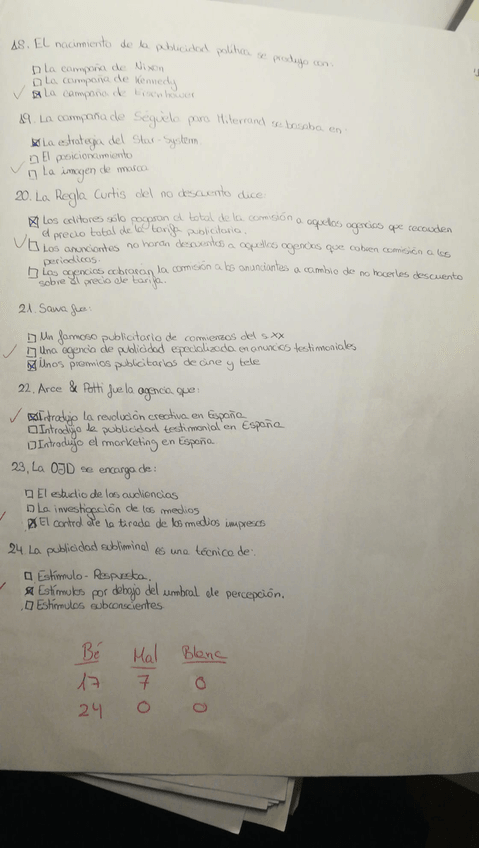 18. EL nacimiento de la publicidad política se produjo con:
La campaña de Nixon
La campaña de Kennedy
La campaña de Eisenhower
19. La campaña de Séguéla para Miterrand se basaba en:
La estrategia del Star-System.
El posicionamiento
La imagen de marca
20. La Regla Curtis del no descuento dice:
Los editores sólo pagaran el total de la comisión a aquellas agencias que recauden
el precio total de la tarifa publicitaria.
Los anunciantes no harán descuentos a aquellas agencias que cobren comisión a los
periódicos.
Las agencias cobrarán la comisión a los anunciantes a cambio de no hacerles descuento
sobre el precio de tarifa.
21. Sawa fue:
Un famoso publicitario de comienzos del s.XX
Una agencia de publicidad especializada en anuncios testimoniales
Unos premios publicitarios de cine y tele
22. Arce & Potti fue la agencia que:
Introdujo la revolución creativa en España
Introdujo la publicidad testimonial en España
Introdujo el marketing en España
23, La OJD se encarga de:
El estudio de las audiencias
La investigación de los medios
El control de la tirada de los medios impresos
24. La publicidad subliminal es una técnica de:
Estímulo-Respuesta.
Estímulos por debajo del umbral de percepción.
Estímulos subconscientes
Bé Mal Blanc
17 7 0
24 0 0